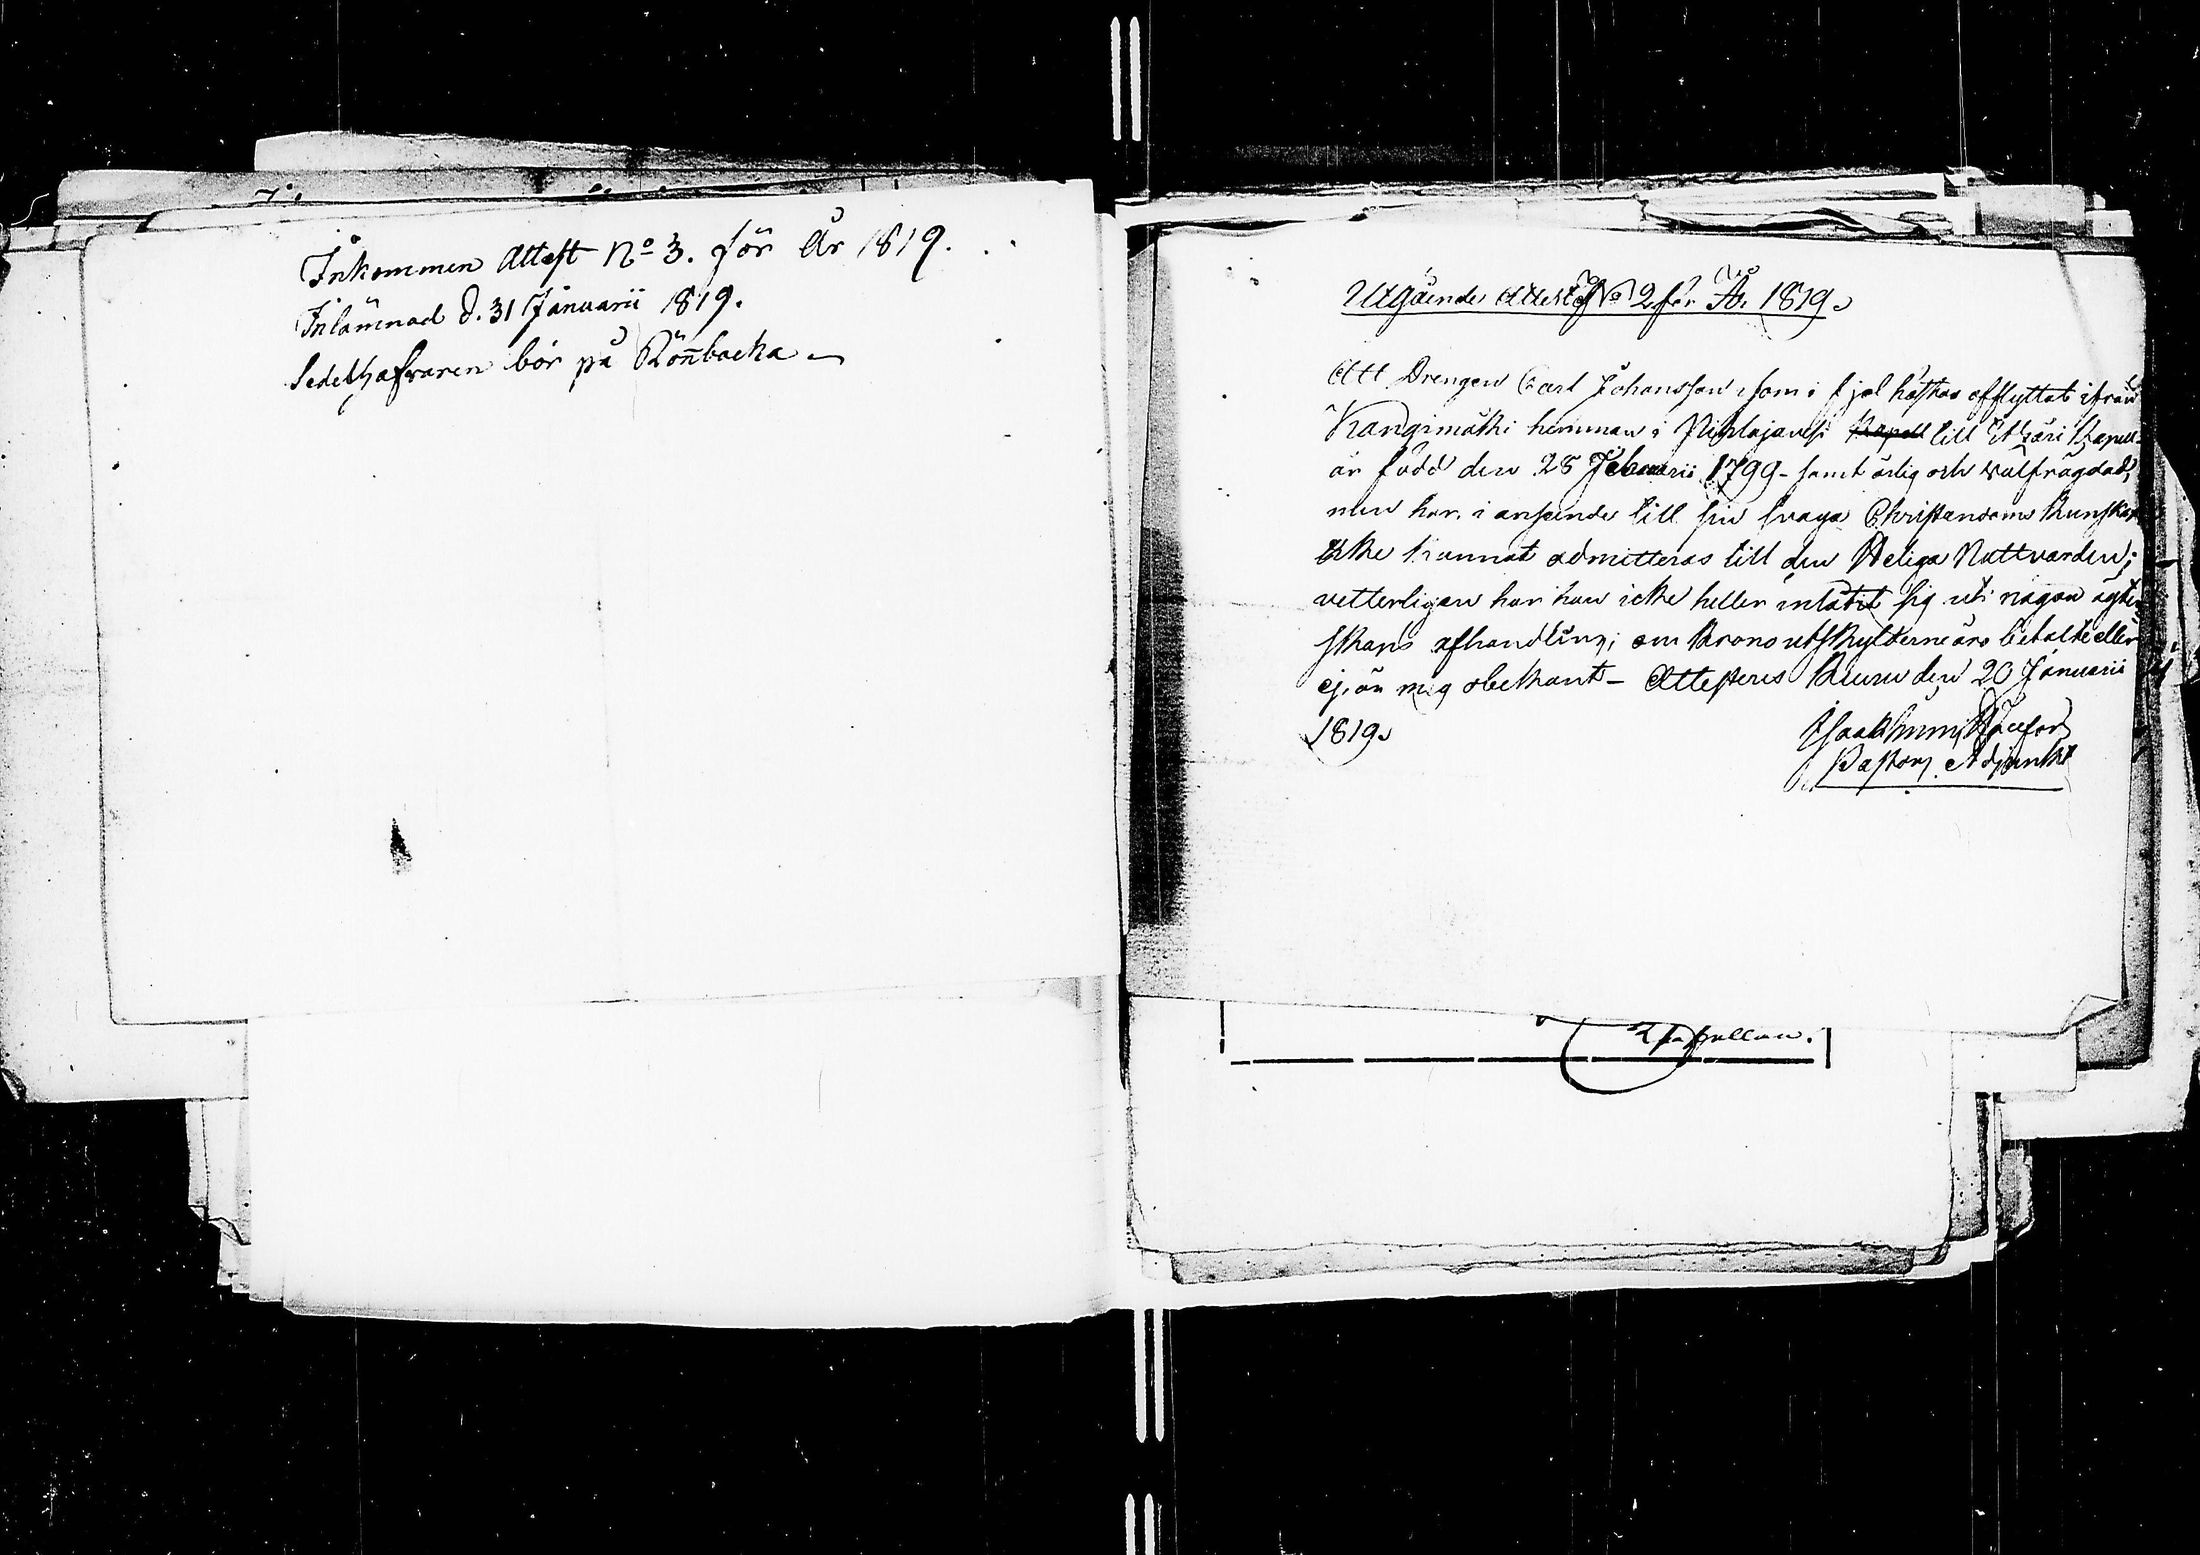 Inkommen Attest No 3. för År 1819.
Inlämnad d. 31 Januarii 1819.
Sedelhafvaren bor på Rönbacka
Utgående Attest No 2 för År 1819.
Att Drengen Carl Johansson som i fjol höstas afflyttat ifrån
Kangimäki hemman i Pihlajavesi Kapell till Etzäri Kapell
är född den 28 Februarii 1799 - samt ärlig och välfrägdad,
men har i anseende till sin svaga Christendoms kunskap
icke kunnat admitteras till den Heliga Nattvarden;
vetterligen har han icke heller inlåtit sig uti någon ägten
skaps afhandling; om Krono utskylderne äro betalte eller
ej, är mig obekant - Attesteres Keuru den 20 Januarii
1819.
Pastors Adjunkt